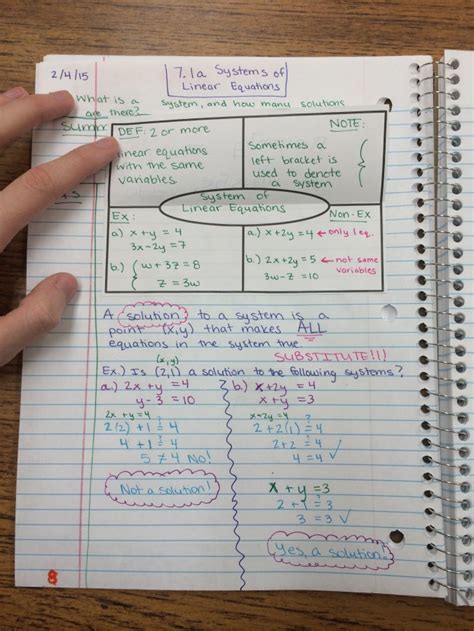 2/4/15
7.1a Systems of
Linear Equations
What is a system, and how many solutions
are there?
DEF: 2 or more
linear equations
with the same
variables
NOTE:
Sometimes a
left bracket is
used to denote
a system
System of
Linear Equations
Ex:
a.) x + y = 4
3x - 2y = 7
b.) w + 3z = 8
z = 3w
Non-Ex
a.) x + 2y = 4 ← only 1 eq.
b.) 2x + 2y = 5 ← not same
variables
3w - z = 10
A solution to a system is a
point (x,y) that makes ALL
equations in the system true
SUBSTITUTE!!!
(x,y)
Ex.) Is (2,1) a solution to the following systems?
a.) 2x + y = 4
y - 3 = 10
2x + y = 4
2(2) + 1 ≟ 4
4 + 1 ≟ 4
5 ≠ 4 No!
Not a solution!
b.) x + 2y = 4
x + y = 3
x + 2y = 4
2 + 2(1) ≟ 4
2 + 2 ≟ 4
4 = 4 ✓
x + y = 3
2 + 1 ≟ 3
3 = 3 ✓
Yes, a solution!
8